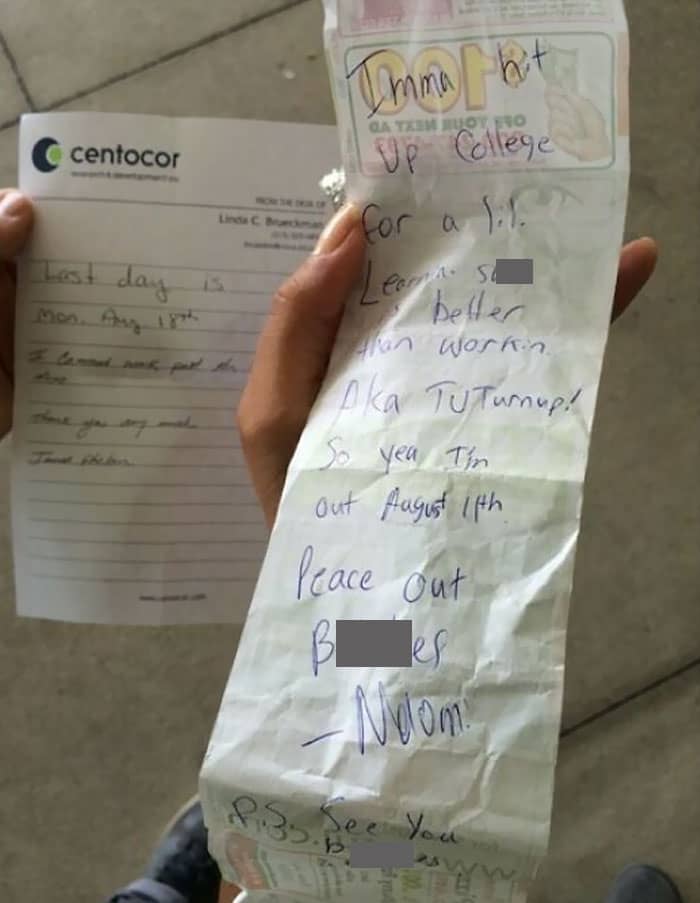 centocor
FROM THE DESK OF
Linda C. Brueckman
Last day is
Mon. Aug 18th
I cannot work past
Thank you very much
Imma hit
$100
OFF YOUR NEXT AD
Up College
for a lil.
Learnin s
is better
than workin.
Aka TUTurnup!
So yea I'm
out August 11th
Peace Out
B es
- Ndomi
P.S. See You
B es